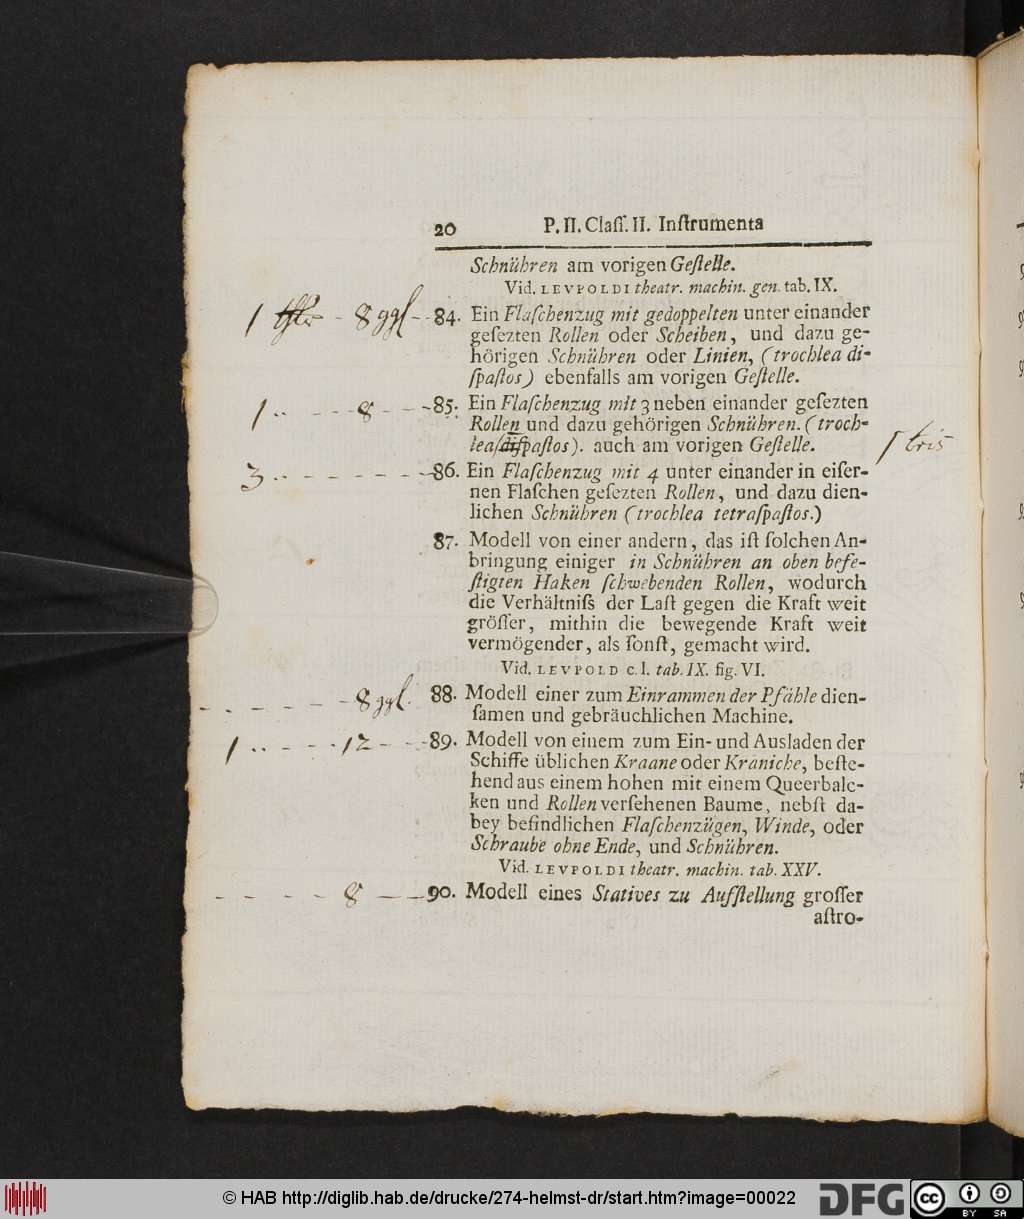 20 P. II. Claſſ. II. Inſtrumenta
Schnühren am vorigen Geſtelle.
Vid. LEVPOLDI theatr. machin. gen. tab. IX.
1 8 ggl 84. Ein Flaſchenzug mit gedoppelten unter einander
geſezten Rollen oder Scheiben, und dazu ge-
hörigen Schnühren oder Linien, (trochlea di-
ſpaſtos) ebenfalls am vorigen Geſtelle.
1 .. - - - 8 - - - 85. Ein Flaſchenzug mit 3 neben einander geſezten
Rollen und dazu gehörigen Schnühren. (troch-
lea diſpaſtos). auch am vorigen Geſtelle. tris
3 .. - - - - - - 86. Ein Flaſchenzug mit 4 unter einander in eiſer-
nen Flaſchen geſezten Rollen, und dazu dien-
lichen Schnühren (trochlea tetraſpaſtos.)
87. Modell von einer andern, das iſt ſolchen An-
bringung einiger in Schnühren an oben befe-
ſtigten Haken ſchwebenden Rollen, wodurch
die Verhältniſs der Laſt gegen die Kraft weit
gröſſer, mithin die bewegende Kraft weit
vermögender, als ſonſt, gemacht wird.
Vid. LEVPOLD c. l. tab. IX. fig. VI.
- - - - - 8 ggl. 88. Modell einer zum Einrammen der Pfähle dien-
ſamen und gebräuchlichen Machine.
1 .. - - - - 12 - - - 89. Modell von einem zum Ein- und Ausladen der
Schiffe üblichen Kraane oder Kraniche, beſte-
hend aus einem hohen mit einem Queerbalc-
ken und Rollen verſehenen Baume, nebſt da-
bey befindlichen Flaſchenzügen, Winde, oder
Schraube ohne Ende, und Schnühren.
Vid. LEVPOLDI theatr. machin. tab. XXV.
- - - - 8 - - 90. Modell eines Statives zu Aufſtellung groſſer
aſtro-
© HAB http://diglib.hab.de/drucke/274-helmst-dr/start.htm?image=00022
DFG
cc BY SA